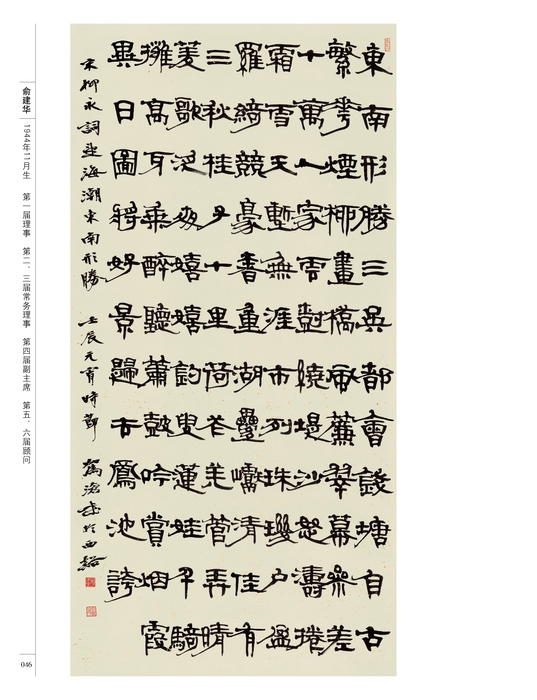 東南形勝三吳都會錢塘自古
繁華煙柳畫橋風簾翠幕參差
十萬人家雲樹繞堤沙怒濤捲
霜雪天塹無涯市列珠璣戶盈
羅綺競豪奢重湖疊巘清佳有
三秋桂子十里荷花羌管弄晴
菱歌泛夜嬉嬉釣叟蓮娃千騎
擁高牙乘醉聽簫鼓吟賞烟霞
異日圖將好景歸去鳳池誇
宋柳永詞望海潮東南形勝 壬辰元宵時節 書於西谿
俞建华
1944年11月生 第一届理事 第二、三届常务理事 第四届副主席 第五、六届顾问
046